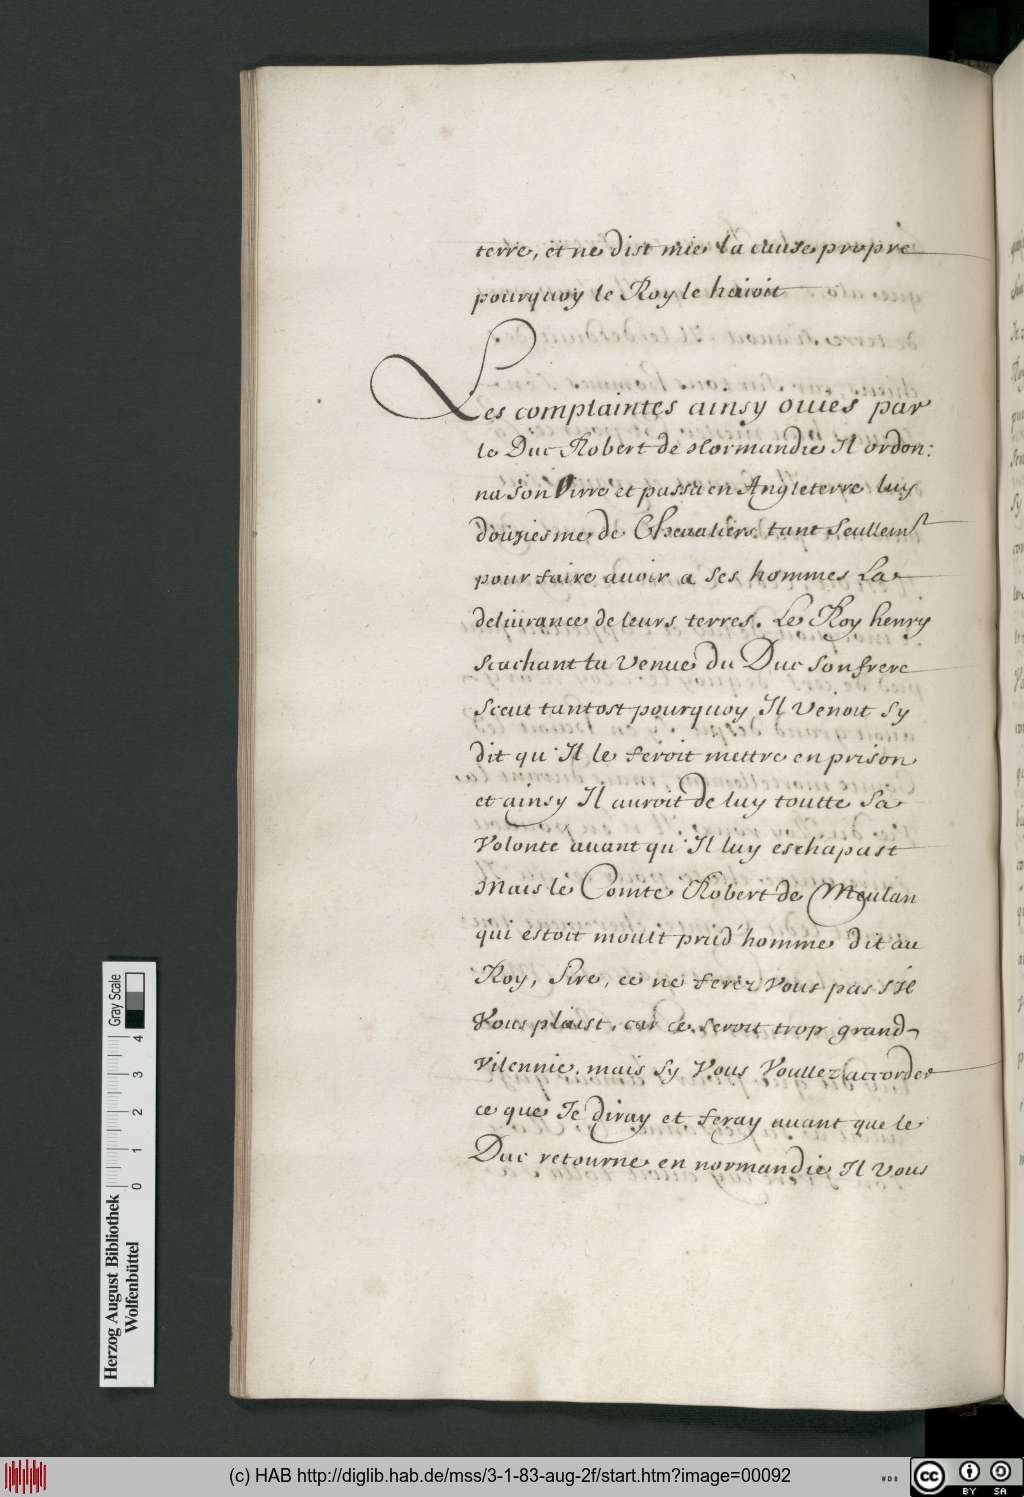 terre, et ne dist mie la cause propre
pourquoy le Roy le haioit
Les complaintes ainsy ouies par
le Duc Robert de Normandie Il ordon:
na son Virre et passa en Angleterre luy
douziesme de Chevaliers tant Seullemt
pour faire avoir a ses hommes La
delivrance de leurs terres. Le Roy henry
scachant la venue du Duc son frere
sceut tantost pourquoy Il venoit sy
dit qu'Il le feroit mettre en prison
et ainsy Il auroit de luy toutte Sa
volonte avant qu'Il luy eschapast
Mais le Comte Robert de Meulan
qui estoit moult prud'homme dit au
Roy, Sire, ce ne ferez vous pas s'Il
Vous plaist, car ce seroit trop grand
vilennie. mais sy Vous Voullez accorder
ce que Je diray et feray avant que le
Duc retourne en normandie Il vous
Herzog August Bibliothek
Wolfenbüttel
0 1 2 3 4
Gray Scale
(c) HAB http://diglib.hab.de/mss/3-1-83-aug-2f/start.htm?image=00092
WDB
cc BY SA